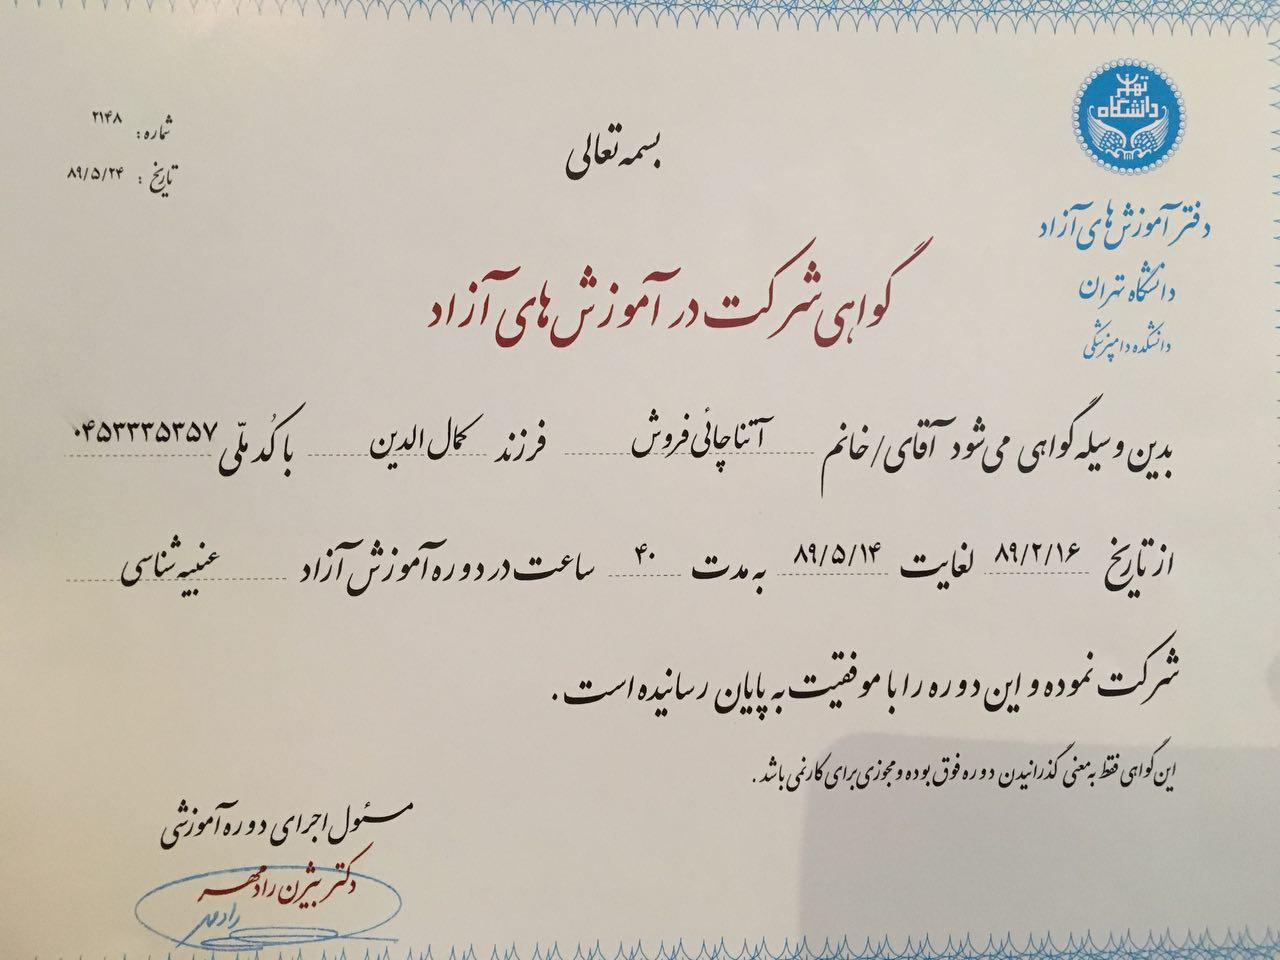 تهران
دانشگاه
دفتر آموزش‌های آزاد
دانشگاه تهران
دانشکده دامپزشکی
شماره: ۲۱۴۸
تاریخ: ۸۹/۵/۲۴
بسمه تعالی
گواهی شرکت در آموزش‌های آزاد
بدین وسیله گواهی می‌شود آقای/خانم آتنا چائی فروش فرزند کمال الدین با کُد ملّی ۰۴۵۳۳۳۵۳۵۷
از تاریخ ۸۹/۲/۱۶ لغایت ۸۹/۵/۱۴ به مدت ۴۰ ساعت در دوره آموزش آزاد عنبیه شناسی
شرکت نموده و این دوره را با موفقیت به پایان رسانیده است.
این گواهی فقط به معنی گذرانیدن دوره فوق بوده و مجوزی برای کار نمی باشد.
مسئول اجرای دوره آموزشی
دکتر بیژن رادمهر